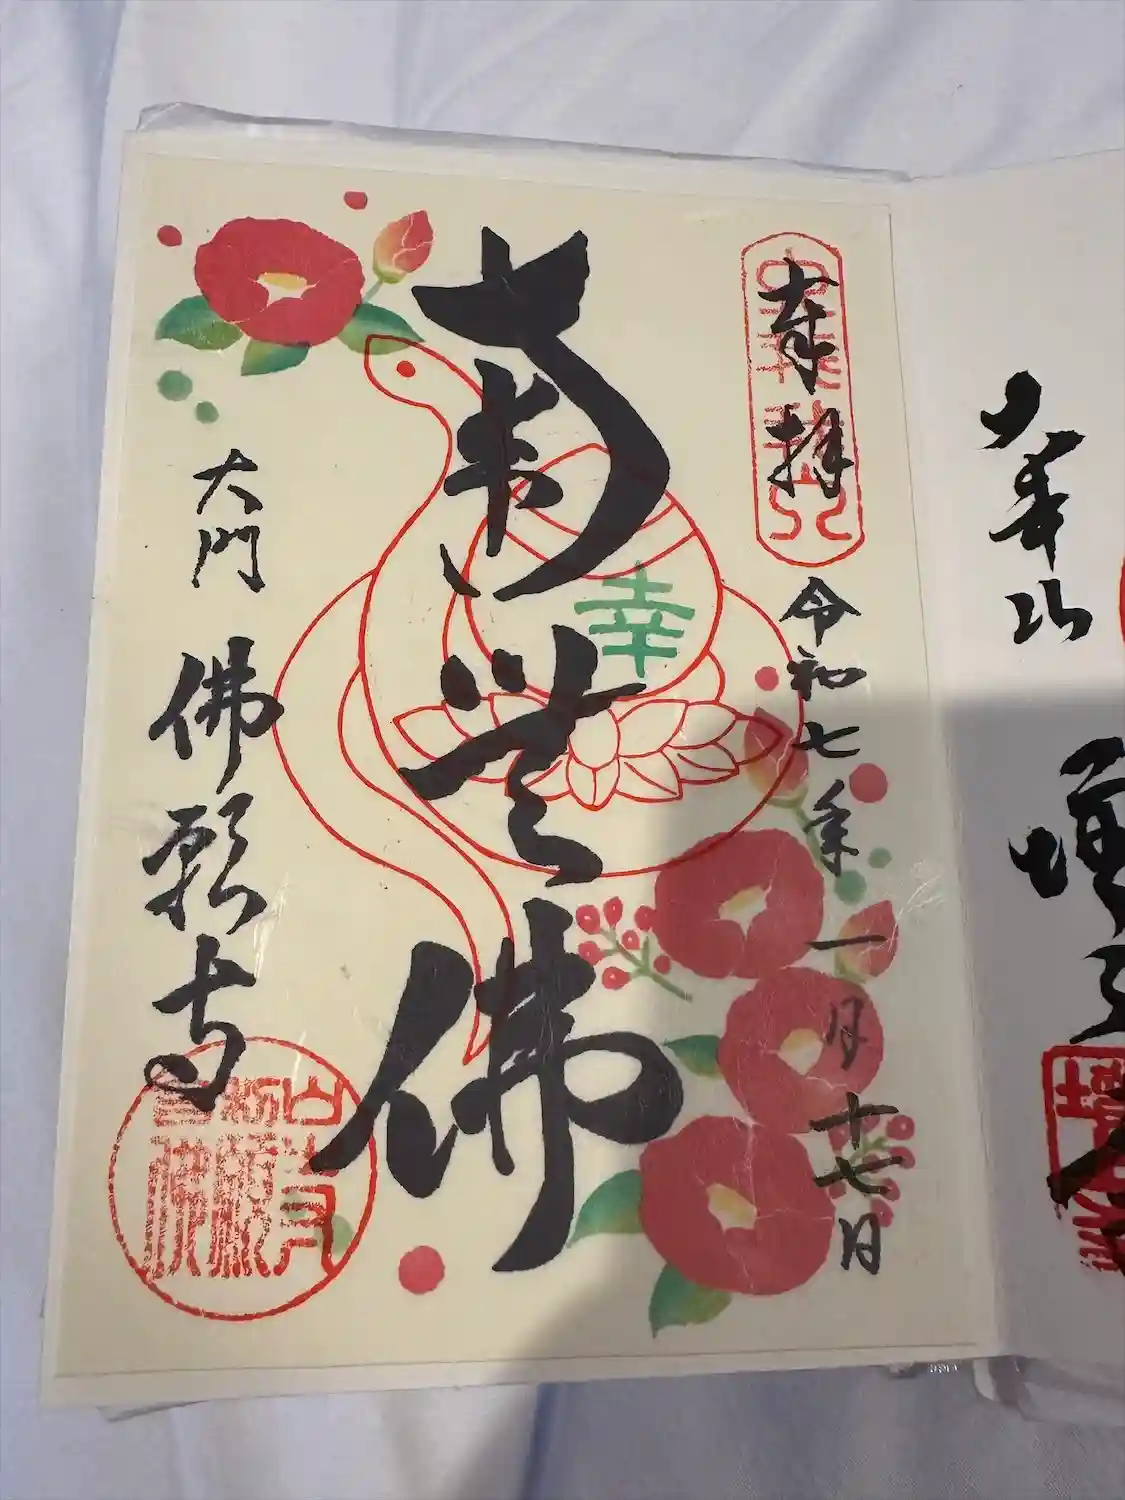 大本山
増上
奉拝
令和七年一月十七日
南無佛
幸
大門 佛願寺